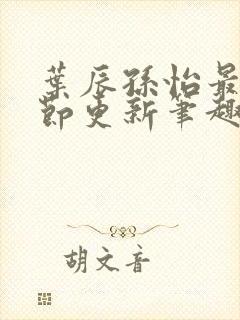 葉辰孫怡最
節更新筆趣
胡文音